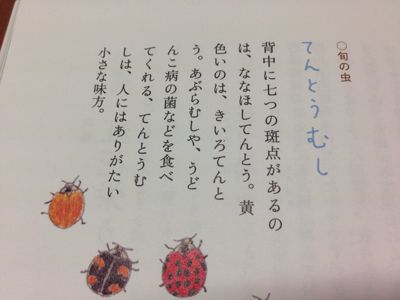 ○旬の虫
てんとうむし
背中に七つの斑点があるの
は、ななほしてんとう。黄
色いのは、きいろてんと
う。あぶらむしや、うど
んこ病の菌などを食べ
てくれる、てんとうむ
しは、人にはありがたい
小さな味方。